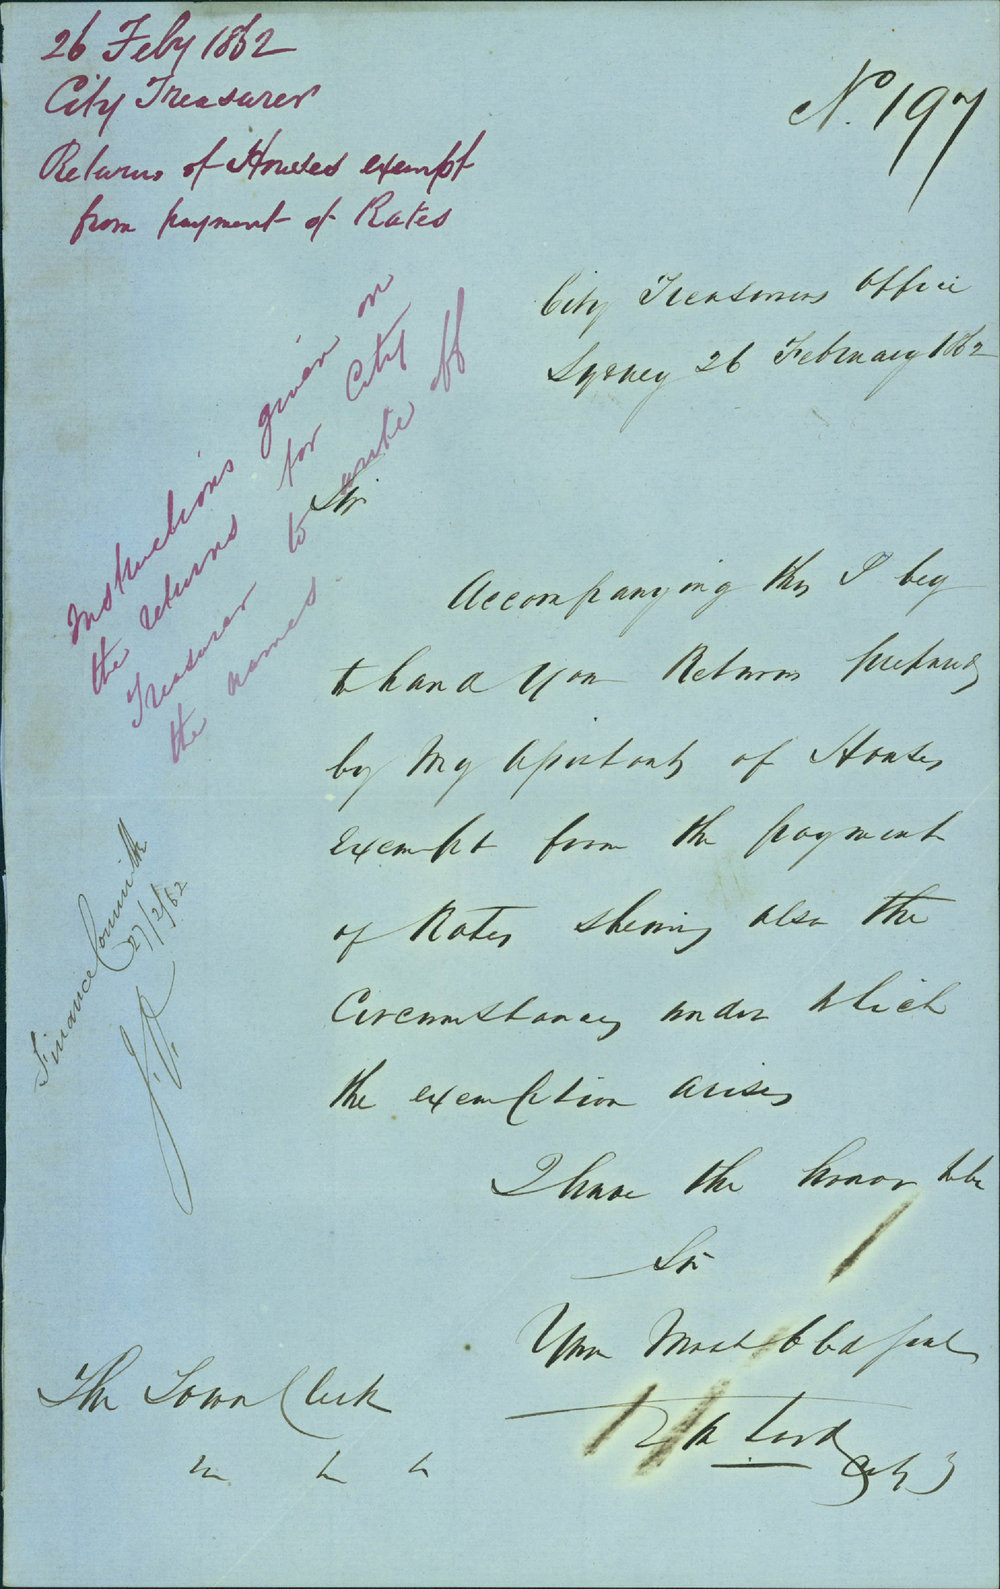 26 Feby 1862
City Treasurer
Returns of Houses exempt
from payment of Rates
No. 197
City Treasurers Office
Sydney 26 February 1862
Instructions given on
the returns for City
Treasurer to write off
the names.
Sir
Accompanying this I beg
to hand you Returns prepared
by My Assistants of Houses
exempt from the payment
of Rates shewing also the
Circumstances under which
the exemption arises
Finance Committee
27/2/62
I have the honor to be
Sir
Your Most Obd Servt
The Town Clerk
City